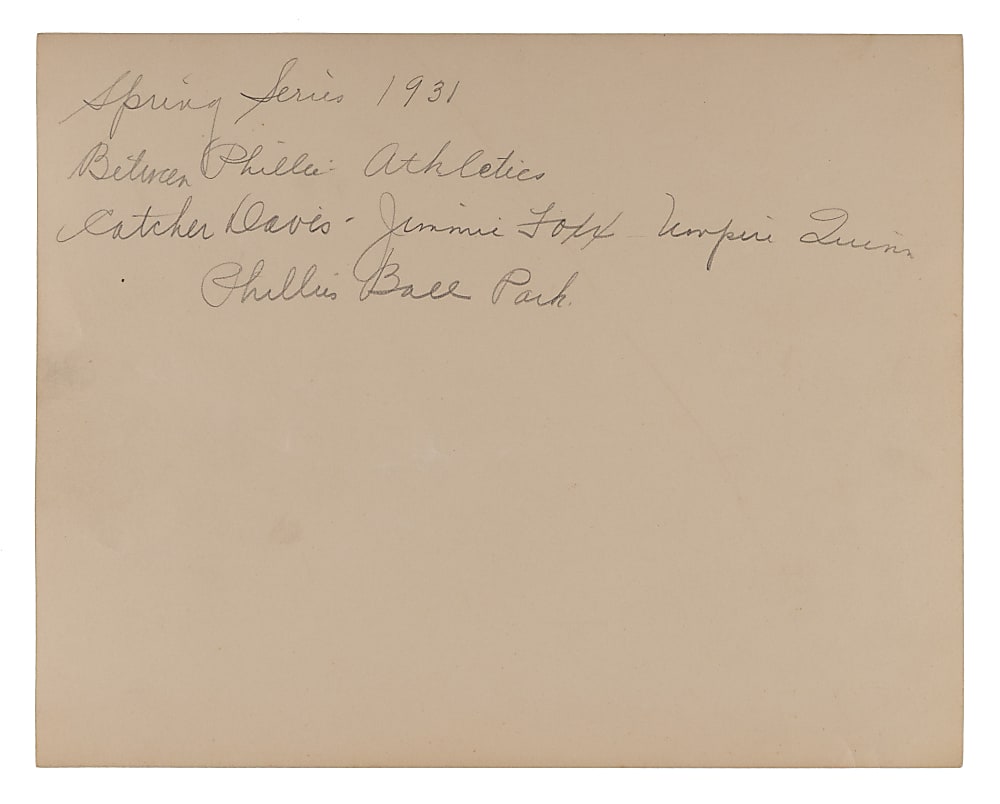 Spring Series 1931
Between Phillie - Athletics
Catcher Davis - Jimmie Foxx - Umpire Quinn
Phillies Ball Park.